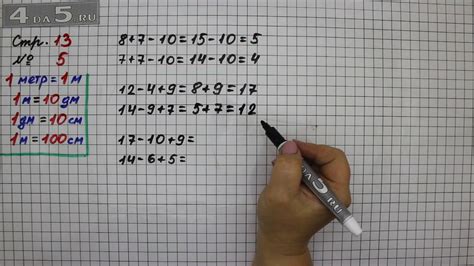 4 DA 5 RU
Стр. 13
№ 5
1 метр = 1 м
1 м = 10 дм
1 дм = 10 см
1 м = 100 см
8+7-10=15-10=5
7+7-10=14-10=4
12-4+9=8+9=17
14-9+7=5+7=12
17-10+9=
14-6+5=
4 DA 5.RU